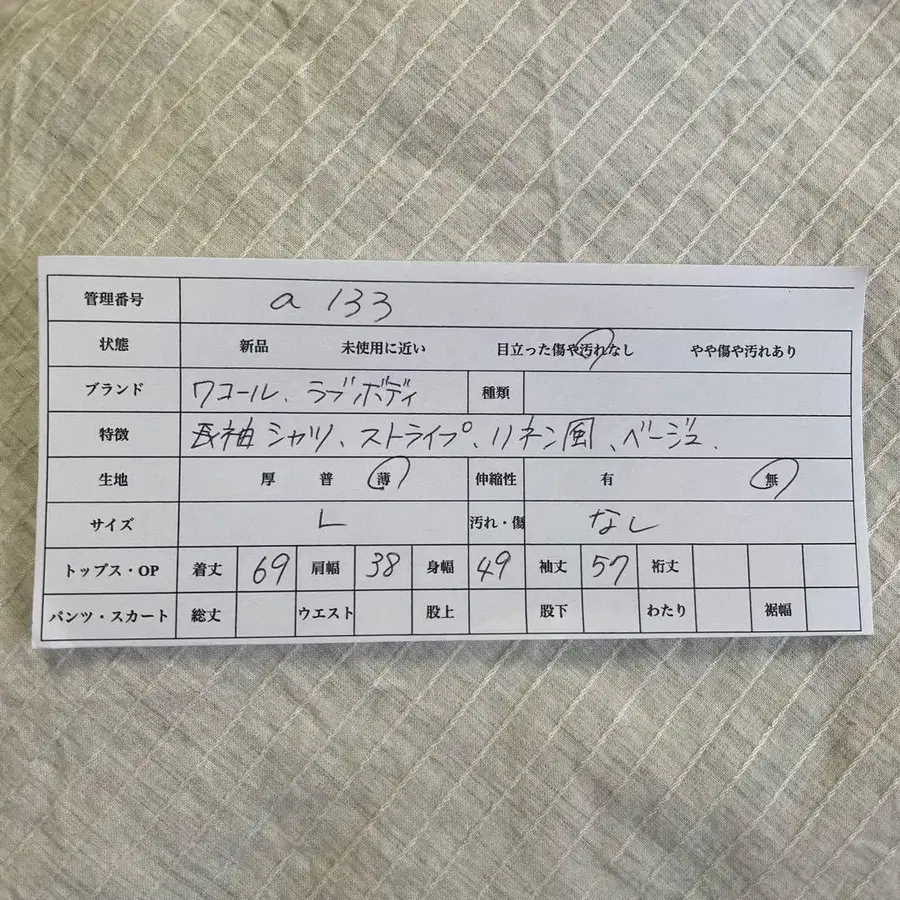 管理番号 a 133
状態 新品 未使用に近い 目立った傷や汚れなし やや傷や汚れあり
ブランド ワコール、ラブボディ 種類
特徴 長袖シャツ、ストライプ、リネン風、ベージュ.
生地 厚 普 薄 伸縮性 有 無
サイズ L 汚れ・傷 なし
トップス・OP 着丈 69 肩幅 38 身幅 49 袖丈 57 裄丈
パンツ・スカート 総丈 ウエスト 股上 股下 わたり 裾幅